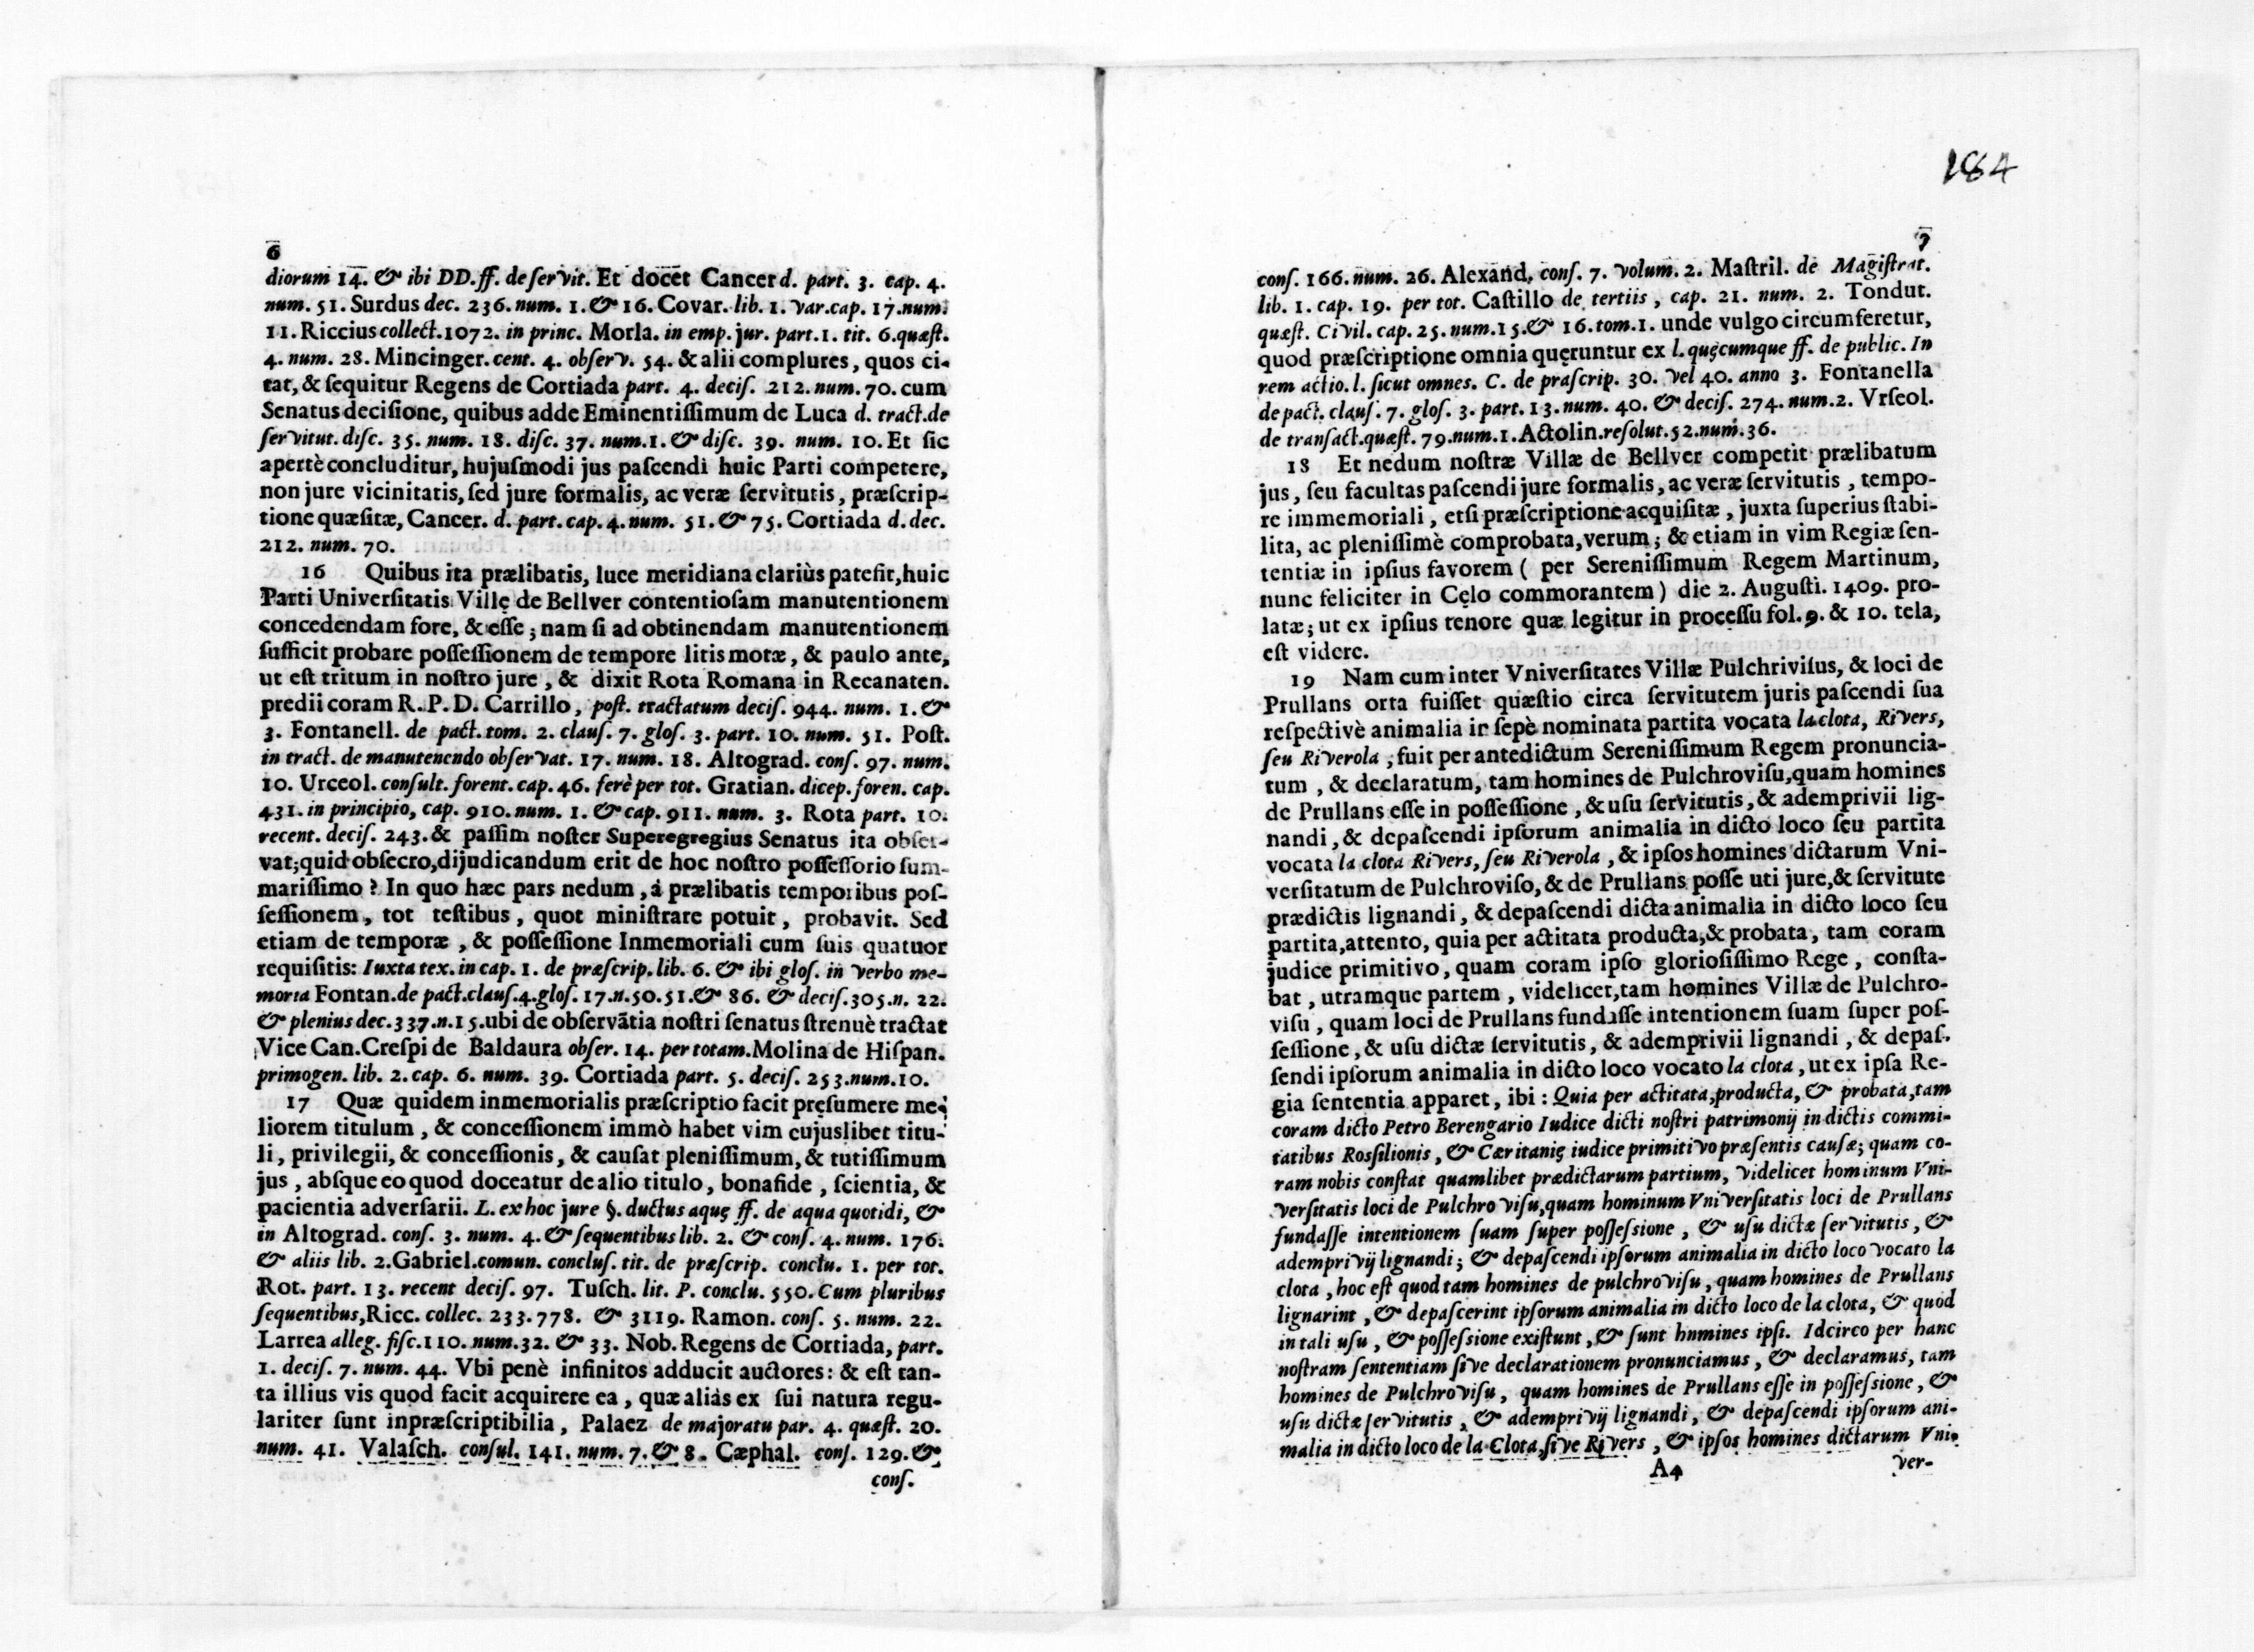 6
diorum 14. & ibi DD. ff. de servit. Et docet Cancer d. part. 3. cap. 4.
num. 51. Surdus dec. 236. num. 1. & 16. Covar. lib. 1. var. cap. 17. num.
11. Riccius collect. 1072. in princ. Morla. in emp. jur. part. 1. tit. 6. quæst.
4. num. 28. Mincinger. cent. 4. observ. 54. & alii complures, quos ci-
tat, & sequitur Regens de Cortiada part. 4. decis. 212. num. 70. cum
Senatus decisione, quibus adde Eminentissimum de Luca d. tract. de
servitut. disc. 35. num. 18. disc. 37. num. 1. & disc. 39. num. 10. Et sic
apertè concluditur, hujusmodi jus pascendi huic Parti competere,
non jure vicinitatis, sed jure formalis, ac veræ servitutis, præscrip-
tione quæsitæ, Cancer. d. part. cap. 4. num. 51. & 75. Cortiada d. dec.
212. num. 70.
16 Quibus ita prælibatis, luce meridiana clariùs patefit, huic
Parti Universitatis Villę de Bellver contentiosam manutentionem
concedendam fore, & esse; nam si ad obtinendam manutentionem
sufficit probare possessionem de tempore litis motæ, & paulo ante,
ut est tritum in nostro jure, & dixit Rota Romana in Recanaten.
predii coram R. P. D. Carrillo, post. tractatum decis. 944. num. 1. &
3. Fontanell. de pact. tom. 2. claus. 7. glos. 3. part. 10. num. 51. Post.
in tract. de manutenendo observat. 17. num. 18. Altograd. cons. 97. num.
10. Urceol. consult. forent. cap. 46. ferè per tot. Gratian. dicep. foren. cap.
431. in principio, cap. 910. num. 1. & cap. 911. num. 3. Rota part. 10.
recent. decis. 243. & passim noster Superegregius Senatus ita obser-
vat; quid obsecro, dijudicandum erit de hoc nostro possessorio sum-
marissimo? In quo hæc pars nedum, á prælibatis temporibus pos-
sessionem, tot testibus, quot ministrare potuit, probavit. Sed
etiam de temporæ, & possessione Inmemoriali cum suis quatuor
requisitis: Iuxta tex. in cap. 1. de præscrip. lib. 6. & ibi glos. in verbo me-
moria Fontan. de pact. claus. 4. glos. 17. n. 50. 51. & 86. & decis. 305. n. 22.
& plenius dec. 337. n. 15. ubi de observãtia nostri senatus strenuè tractat
Vice Can. Crespi de Baldaura obser. 14. per totam. Molina de Hispan.
primogen. lib. 2. cap. 6. num. 39. Cortiada part. 5. decis. 253. num. 10.
17 Quæ quidem inmemorialis præscriptio facit pręsumere me-
liorem titulum, & concessionem immò habet vim cujuslibet titu-
li, privilegii, & concessionis, & causat plenissimum, & tutissimum
jus, absque eo quod doceatur de alio titulo, bonafide, scientia, &
pacientia adversarii. L. ex hoc jure §. ductus aquę ff. de aqua quotidi, &
in Altograd. cons. 3. num. 4. & sequentibus lib. 2. & cons. 4. num. 176.
& aliis lib. 2. Gabriel. comun. conclus. tit. de præscrip. conclu. 1. per tot.
Rot. part. 13. recent decis. 97. Tusch. lit. P. conclu. 550. Cum pluribus
sequentibus, Ricc. collec. 233. 778. & 3119. Ramon. cons. 5. num. 22.
Larrea alleg. fisc. 110. num. 32. & 33. Nob. Regens de Cortiada, part.
1. decis. 7. num. 44. Vbi penè infinitos adducit auctores: & est tan-
ta illius vis quod facit acquirere ea, quæ aliàs ex sui natura regu-
lariter sunt inpræscriptibilia, Palaez de majoratu par. 4. quæst. 20.
num. 41. Valasch. consul. 141. num. 7. & 8. Cæphal. cons. 129. &
cons.
184
7
cons. 166. num. 26. Alexand. cons. 7. volum. 2. Mastril. de Magistrat.
lib. 1. cap. 19. per tot. Castillo de tertiis, cap. 21. num. 2. Tondut.
quæst. Civil. cap. 25. num. 15. & 16. tom. 1. unde vulgo circumferetur,
quod præscriptione omnia quęruntur ex l. quęcumque ff. de public. In
rem actio. l. sicut omnes. C. de præscrip. 30. vel 40. anno 3. Fontanella
de pact. claus. 7. glos. 3. part. 13. num. 40. & decis. 274. num. 2. Vrseol.
de transact. quæst. 79. num. 1. Actolin. resolut. 52. num. 36.
18 Et nedum nostræ Villæ de Bellver competit prælibatum
jus, seu facultas pascendi jure formalis, ac veræ servitutis, tempo-
re immemoriali, etsi præscriptione acquisitæ, juxta superius stabi-
lita, ac plenissimè comprobata, verum; & etiam in vim Regiæ sen-
tentiæ in ipsius favorem ( per Serenissimum Regem Martinum,
nunc feliciter in Cęlo commorantem) die 2. Augusti. 1409. pro-
latæ; ut ex ipsius tenore quæ legitur in processu fol. 9. & 10. tela,
est videre.
19 Nam cum inter Vniversitates Villæ Pulchrivisus, & loci de
Prullans orta fuisset quæstio circa servitutem juris pascendi sua
respectivè animalia in sepè nominata partita vocata la clota, Rivers,
seu Riverola; fuit per antedictum Serenissimum Regem pronuncia-
tum, & declaratum, tam homines de Pulchrovisu, quam homines
de Prullans esse in possessione, & usu servitutis, & ademprivii lig-
nandi, & depascendi ipsorum animalia in dicto loco seu partita
vocata la clota Rivers, seu Riverola, & ipsos homines dictarum Vni-
versitatum de Pulchroviso, & de Prullans posse uti jure, & servitute
prædictis lignandi, & depascendi dicta animalia in dicto loco seu
partita, attento, quia per actitata producta, & probata, tam coram
judice primitivo, quam coram ipso gloriosissimo Rege, consta-
bat, utramque partem, videlicet, tam homines Villæ de Pulchro-
visu, quam loci de Prullans fundasse intentionem suam super pos-
sessione, & usu dictæ servitutis, & ademprivii lignandi, & depas-
sendi ipsorum animalia in dicto loco vocato la clota, ut ex ipsa Re-
gia sententia apparet, ibi: Quia per actitata, producta, & probata, tam
coram dicto Petro Berengario Iudice dicti nostri patrimonij in dictis commi-
tatibus Rossilionis, & Cæritanię iudice primitivo præsentis causæ; quam co-
ram nobis constat quamlibet prædictarum partium, videlicet hominum Vni-
versitatis loci de Pulchrovisu, quam hominum Vniversitatis loci de Prullans
fundasse intentionem suam super possessione, & usu dictæ servitutis, &
ademprivij lignandi; & depascendi ipsorum animalia in dicto loco vocato la
clota, hoc est quod tam homines de pulchrovisu, quam homines de Prullans
lignarint, & depascerint ipsorum animalia in dicto loco de la clota, & quod
in tali usu, & possessione existunt, & sunt hnmines ipsi. Idcirco per hanc
nostram sententiam sive declarationem pronunciamus, & declaramus, tam
homines de Pulchrovisu, quam homines de Prullans esse in possessione, &
usu dictæ servitutis, & ademprivij lignandi, & depascendi ipsorum ani-
malia in dicto loco de la Clota, sive Rivers, & ipsos homines dictarum Vni-
A4 ver-